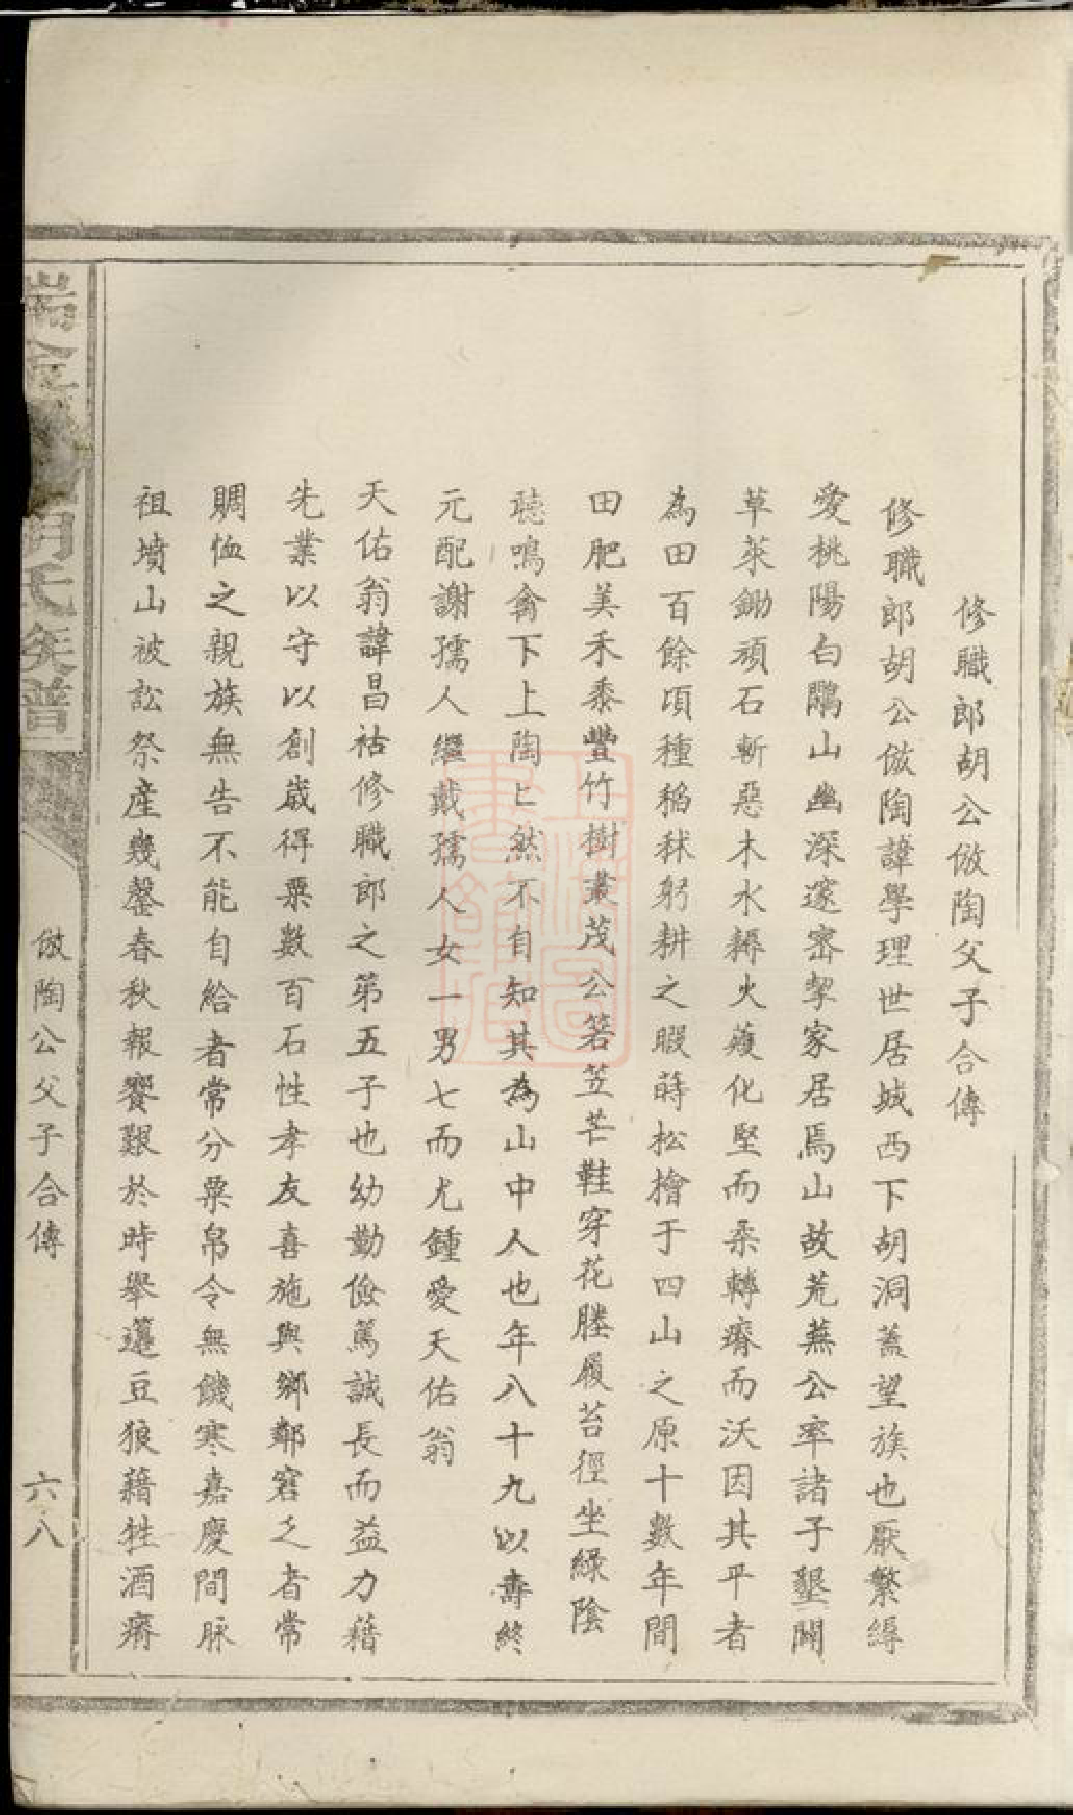 修職郎胡公倣陶父子合傳
修職郎胡公倣陶諱學理世居城西下胡洞蓋望族也厭繁縟
愛桃陽白鷴山幽深邃密挈家居焉山故荒蕪公率諸子墾闢
草萊鋤頑石斬惡木水耨火薙化堅而柔轉瘠而沃因其平者
為田百餘頃種稻秫躬耕之暇蒔松檜于四山之原十數年間
田肥美禾黍豐竹樹叢茂公箬笠芒鞋穿花塍履苔徑坐綠陰
聽鳴禽下上陶匕然不自知其為山中人也年八十九以壽終
元配謝孺人繼戴孺人女一男七而尤鍾愛天佑翁
天佑翁諱昌祜修職郎之第五子也幼勤儉篤誠長而益力藉
先業以守以創歲得粟數百石性孝友喜施與鄉鄰窘乏者常
賙恤之親族無告不能自給者常分粟帛令無饑寒嘉慶間脉
祖墳山被訟祭產幾罄春秋報饗艱於時舉籩豆狼藉牲酒瘠
瑞金胡氏族譜
倣陶公父子合傳
六八